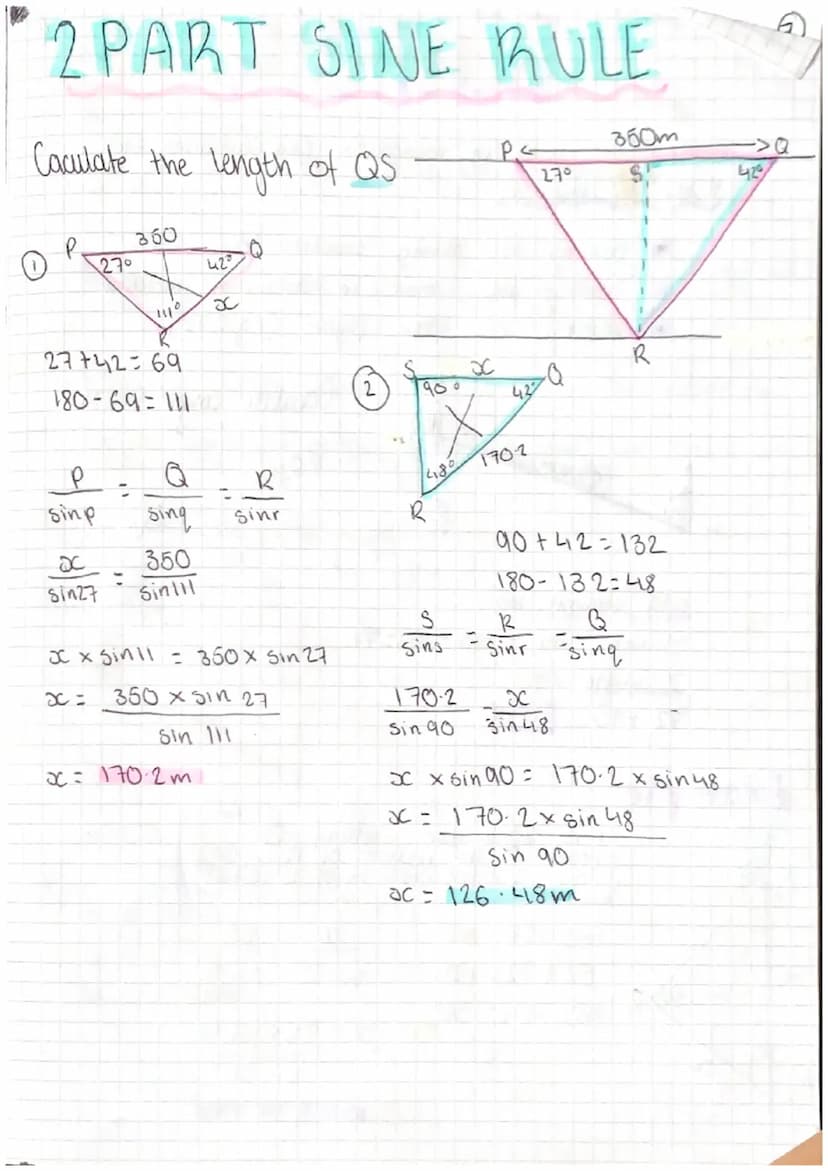 2 PART SINE RULE
Caculate the length of QS
P 350m Q
27° S 42°
R
① P 350 Q
27° 42°
111° x
R
27+42=69
180-69=111
P/sinp = Q/sinq = R/sinr
x/sin27 = 350/sin111
x × sin11 = 350 × sin 27
x = 350 × sin 27/sin 111
x = 170.2m
② S x Q
90° 42°
48° 170.2
R
90+42=132
180-132=48
S/sins = R/sinr = Q/sinq
170.2/sin 90 = x/sin48
x × sin90 = 170.2 × sin48
x = 170.2 × sin 48/sin 90
x = 126.48m